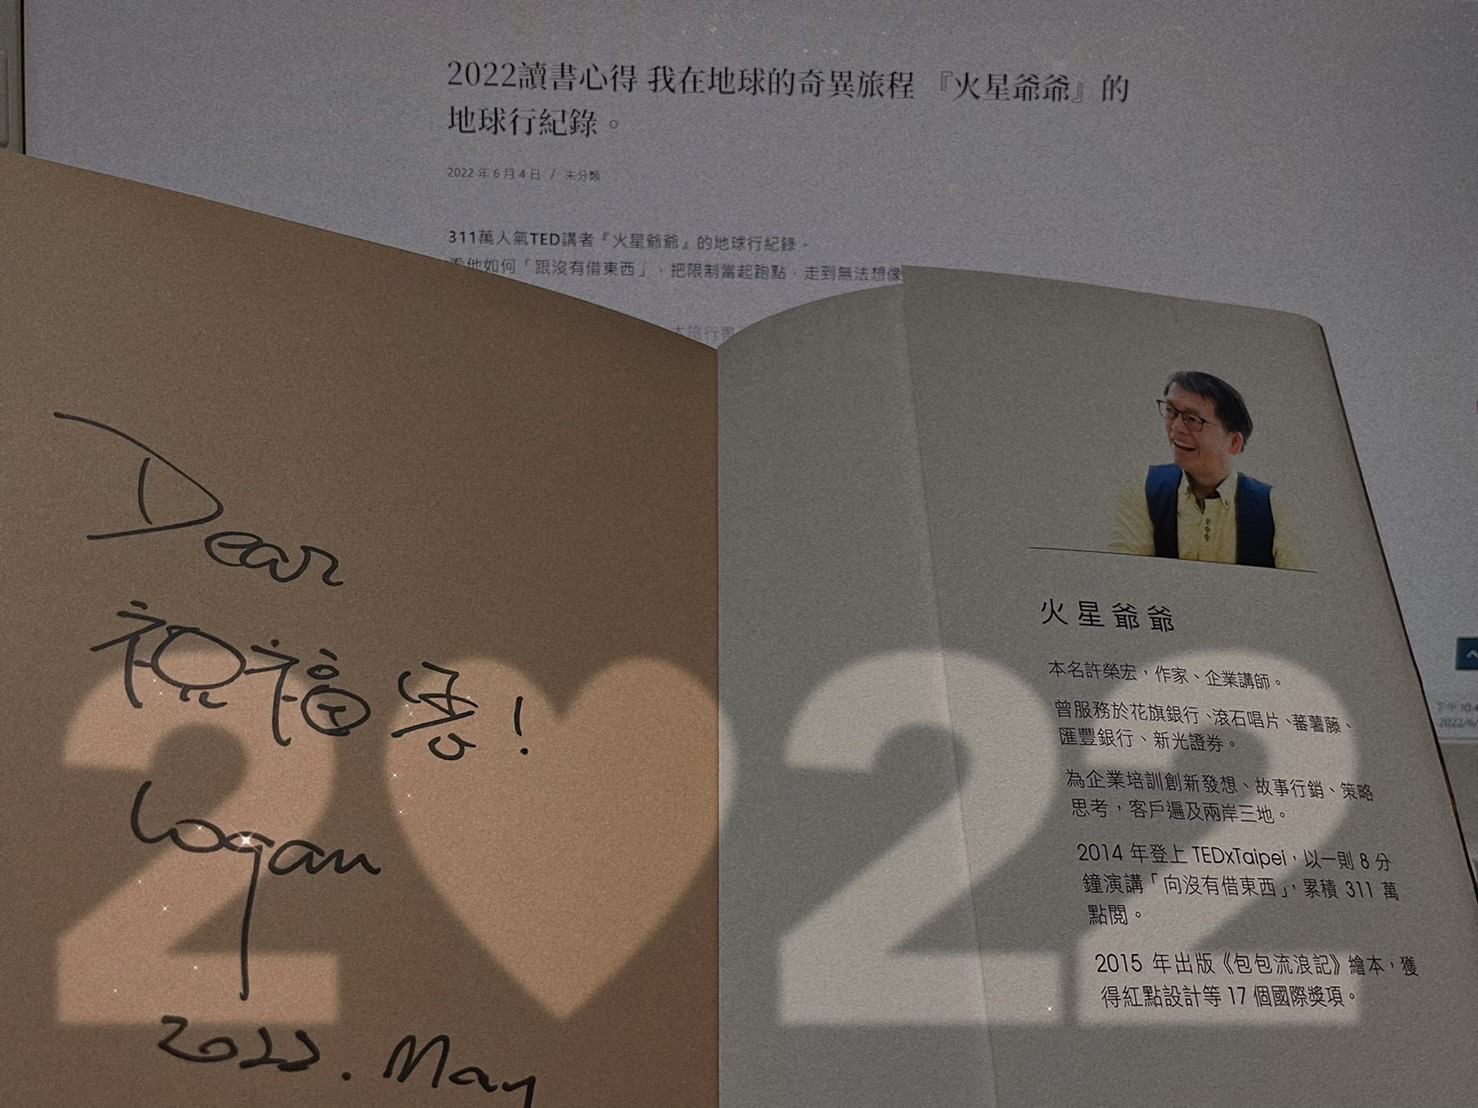 2022讀書心得 我在地球的奇異旅程 『火星爺爺』的
地球行紀錄。
2022 年 6 月 4 日 / 未分類
311萬人氣TED講者『火星爺爺』的地球行紀錄。
看他如何「跟沒有借東西」、把限制當起跑點、走到無法想像
本旅行書
Dear
祝福您!
Logan
2022. May
2 22
火星爺爺
本名許榮宏，作家、企業講師。
曾服務於花旗銀行、滾石唱片、蕃薯藤、
匯豐銀行、新光證券。
為企業培訓創新發想、故事行銷、策略
思考，客戶遍及兩岸三地。
2014 年登上 TEDxTaipei，以一則 8 分
鐘演講「向沒有借東西」，累積 311 萬
點閱。
2015 年出版《包包流浪記》繪本，獲
得紅點設計等 17 個國際獎項。